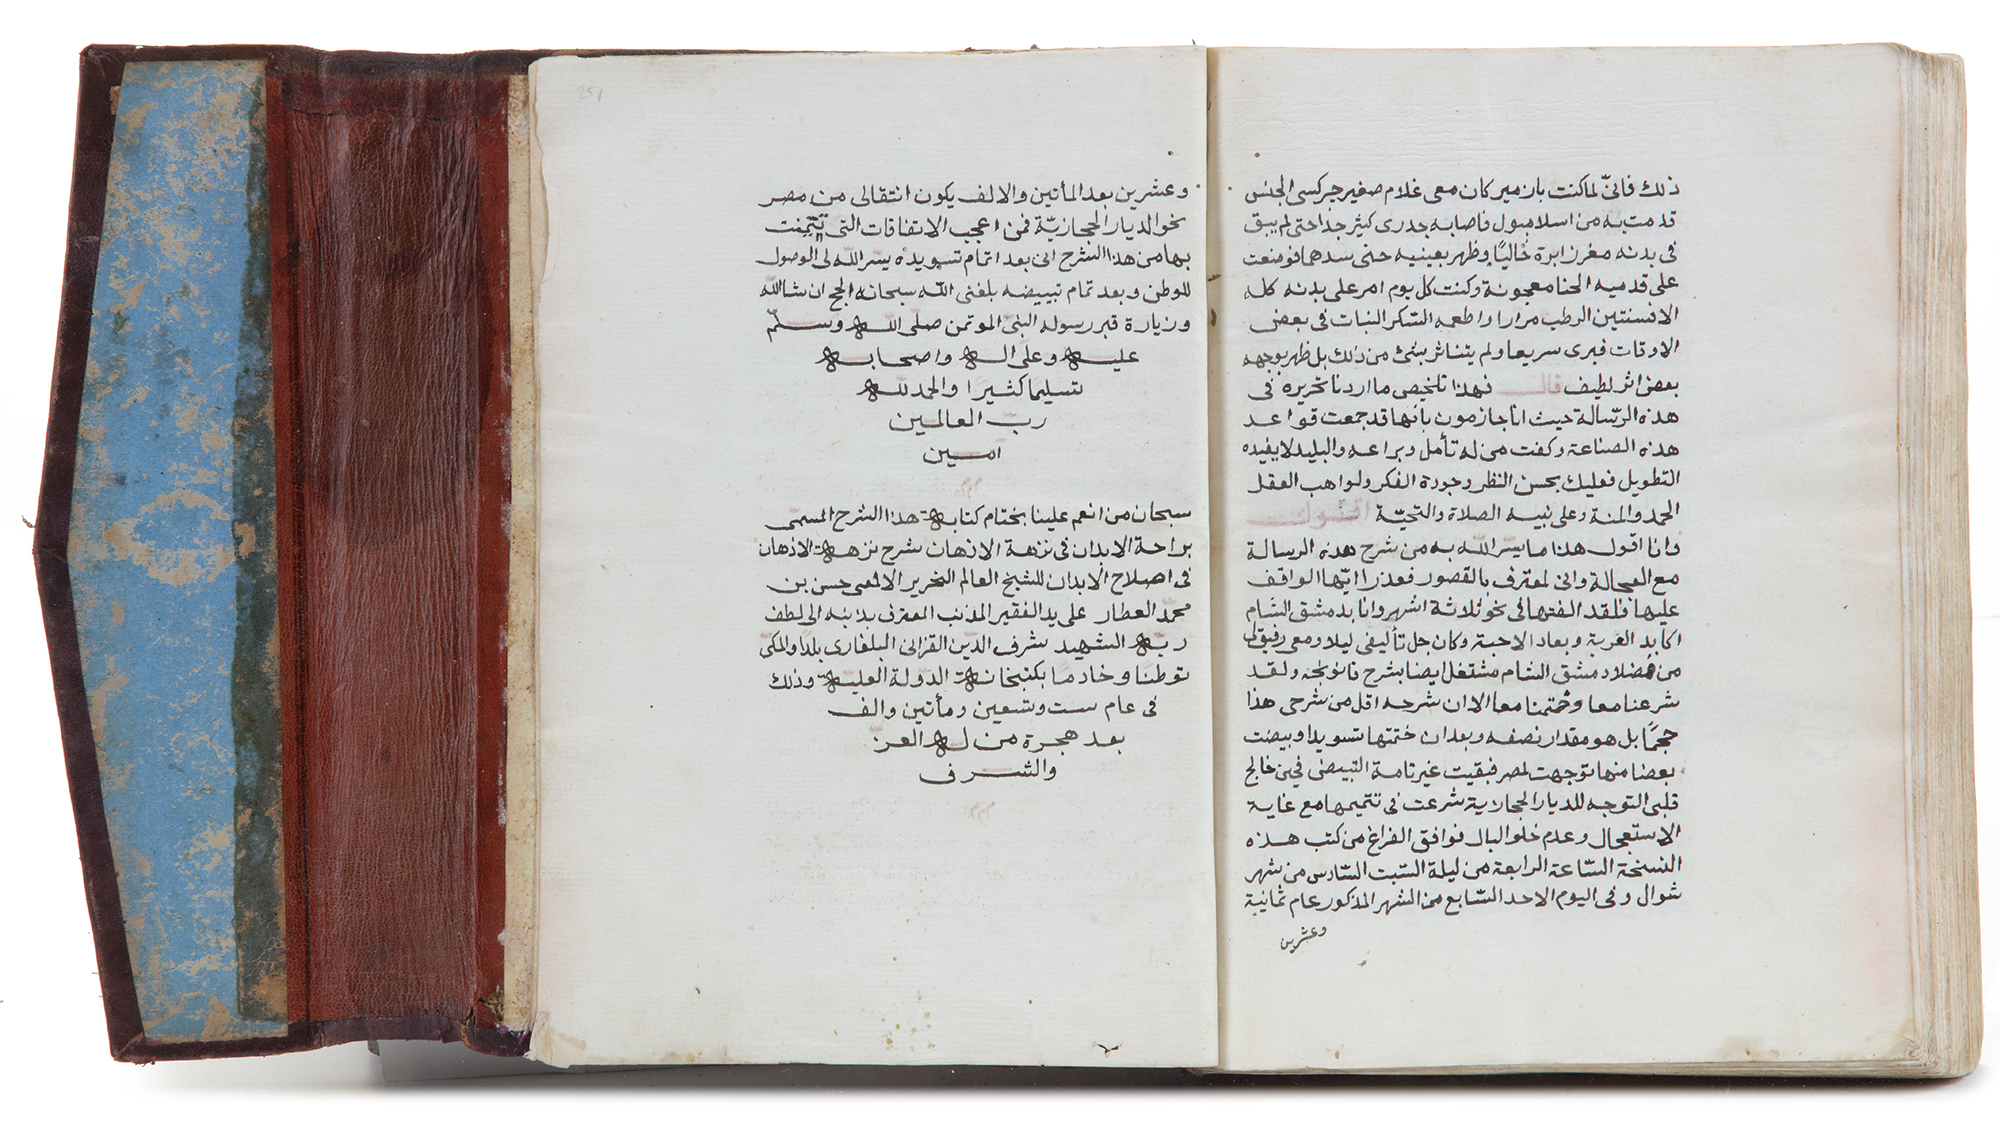 ذلك فانىّ لما كنت بازمير كان معى غلام صغير جركسى الجنس
قدمت به من اسلامبول فاصابه جدرى كثير جدا حتى لم يبق
فى بدنه مغرز ابرة خاليًا وظهر بعينيه حتى سدهما فوضعت
على قدميه الحنا معجونة وكنت كل يوم امر على بدنه كله
الافسنتين الرطب مرارا واطعمه السكر النبات فى بعض
الاوقات فبرى سريعا ولم يتناثر بشئ من ذلك بل ظهر بوجهه
بعض اثر لطيف قال فهذا تلخيص ما اردنا تحريره فى
هذه الرّسالة حيث انا جازمون بانها قد جمعت قواعد
هذه الصناعة وكفت من له تأمل وبراعه والبليد لا يفيده
التطويل فعليك بحسن النظر وجودة الفكر ولواهب العقل
الحمد والمنة وعلى نبيه الصلاة والتحيّة اقول
وانا اقول هذا ما يسّر اللّه به من شرح هذه الرسالة
مع العجالة وانى لمعترف بالقصور فعذرا ايّها الواقف
عليها فلقد الفتها فى نحو ثلاثة اشهر وانا بدمشق الشام
اكابد الغربة وبعاد الاحبة وكان جل تأليفى ليلا ومعى رفيق لى
من فضلاء دمشق الشام مشتغل ايضا بشرح قانونجه ولقد
شرعنا معا وختمنا معا الا ان شرحه اقل من شرحى هذا
حجمًا بل هو مقدار نصفه وبعد ان ختمتها تسويدا وبيضت
بعضا منها توجهت لمصر فبقيت غير تامة التبيض فحين خالج
قلبى التوجه للديار الحجازية شرعت فى تتميمها مع غاية
الاستعجال وعدم خلو البال فوافق الفراغ من كتب هذه
النسخة السّاعة الرابعة من ليلة السّبت السّادس من شهر
شوال وفى اليوم الاحد السّابع من الشهر المذكور عام ثمانية
وعشرين
251
وعشرين بعد المأتين والالف يكون انتقالى من مصر
نحو الديار الحجازيّة فمن اعجب الاتفاقات التى تيمنت
بها من هذا الشرح انى بعد اتمام تسويده يسّر اللّه لى الوصول
للوطن وبعد تمام تبييضه بلغنى اللّه سبحانه الحج ان شا اللّه
وزيارة قبر رسوله النبى الموتمن صلى اللّه وسلّم
عليه وعلى اله واصحابه
تسليما كثيرا والحمد للّه
ربّ العالمين
امين
سبحان من انعم علينا بختام كتابة هذا الشرح المسمى
براحة الابدان فى نزهة الاذهان شرح نزهة الاذهان
فى اصلاح الابدان للشيخ العالم النحرير الالمعى حسن بن
محمّد العطار على يد الفقير المذنب المعترف بذنبه الى لطف
ربّه الشهيد شرف الدّين القزانى البلغارى بلدًا والمكّى
توطنًا وخادمًا بكتبخانة الدّولة العليّة وذلك
فى عام ست وتسعين ومأتين والف
بعد هجرة من له العز
والشرف